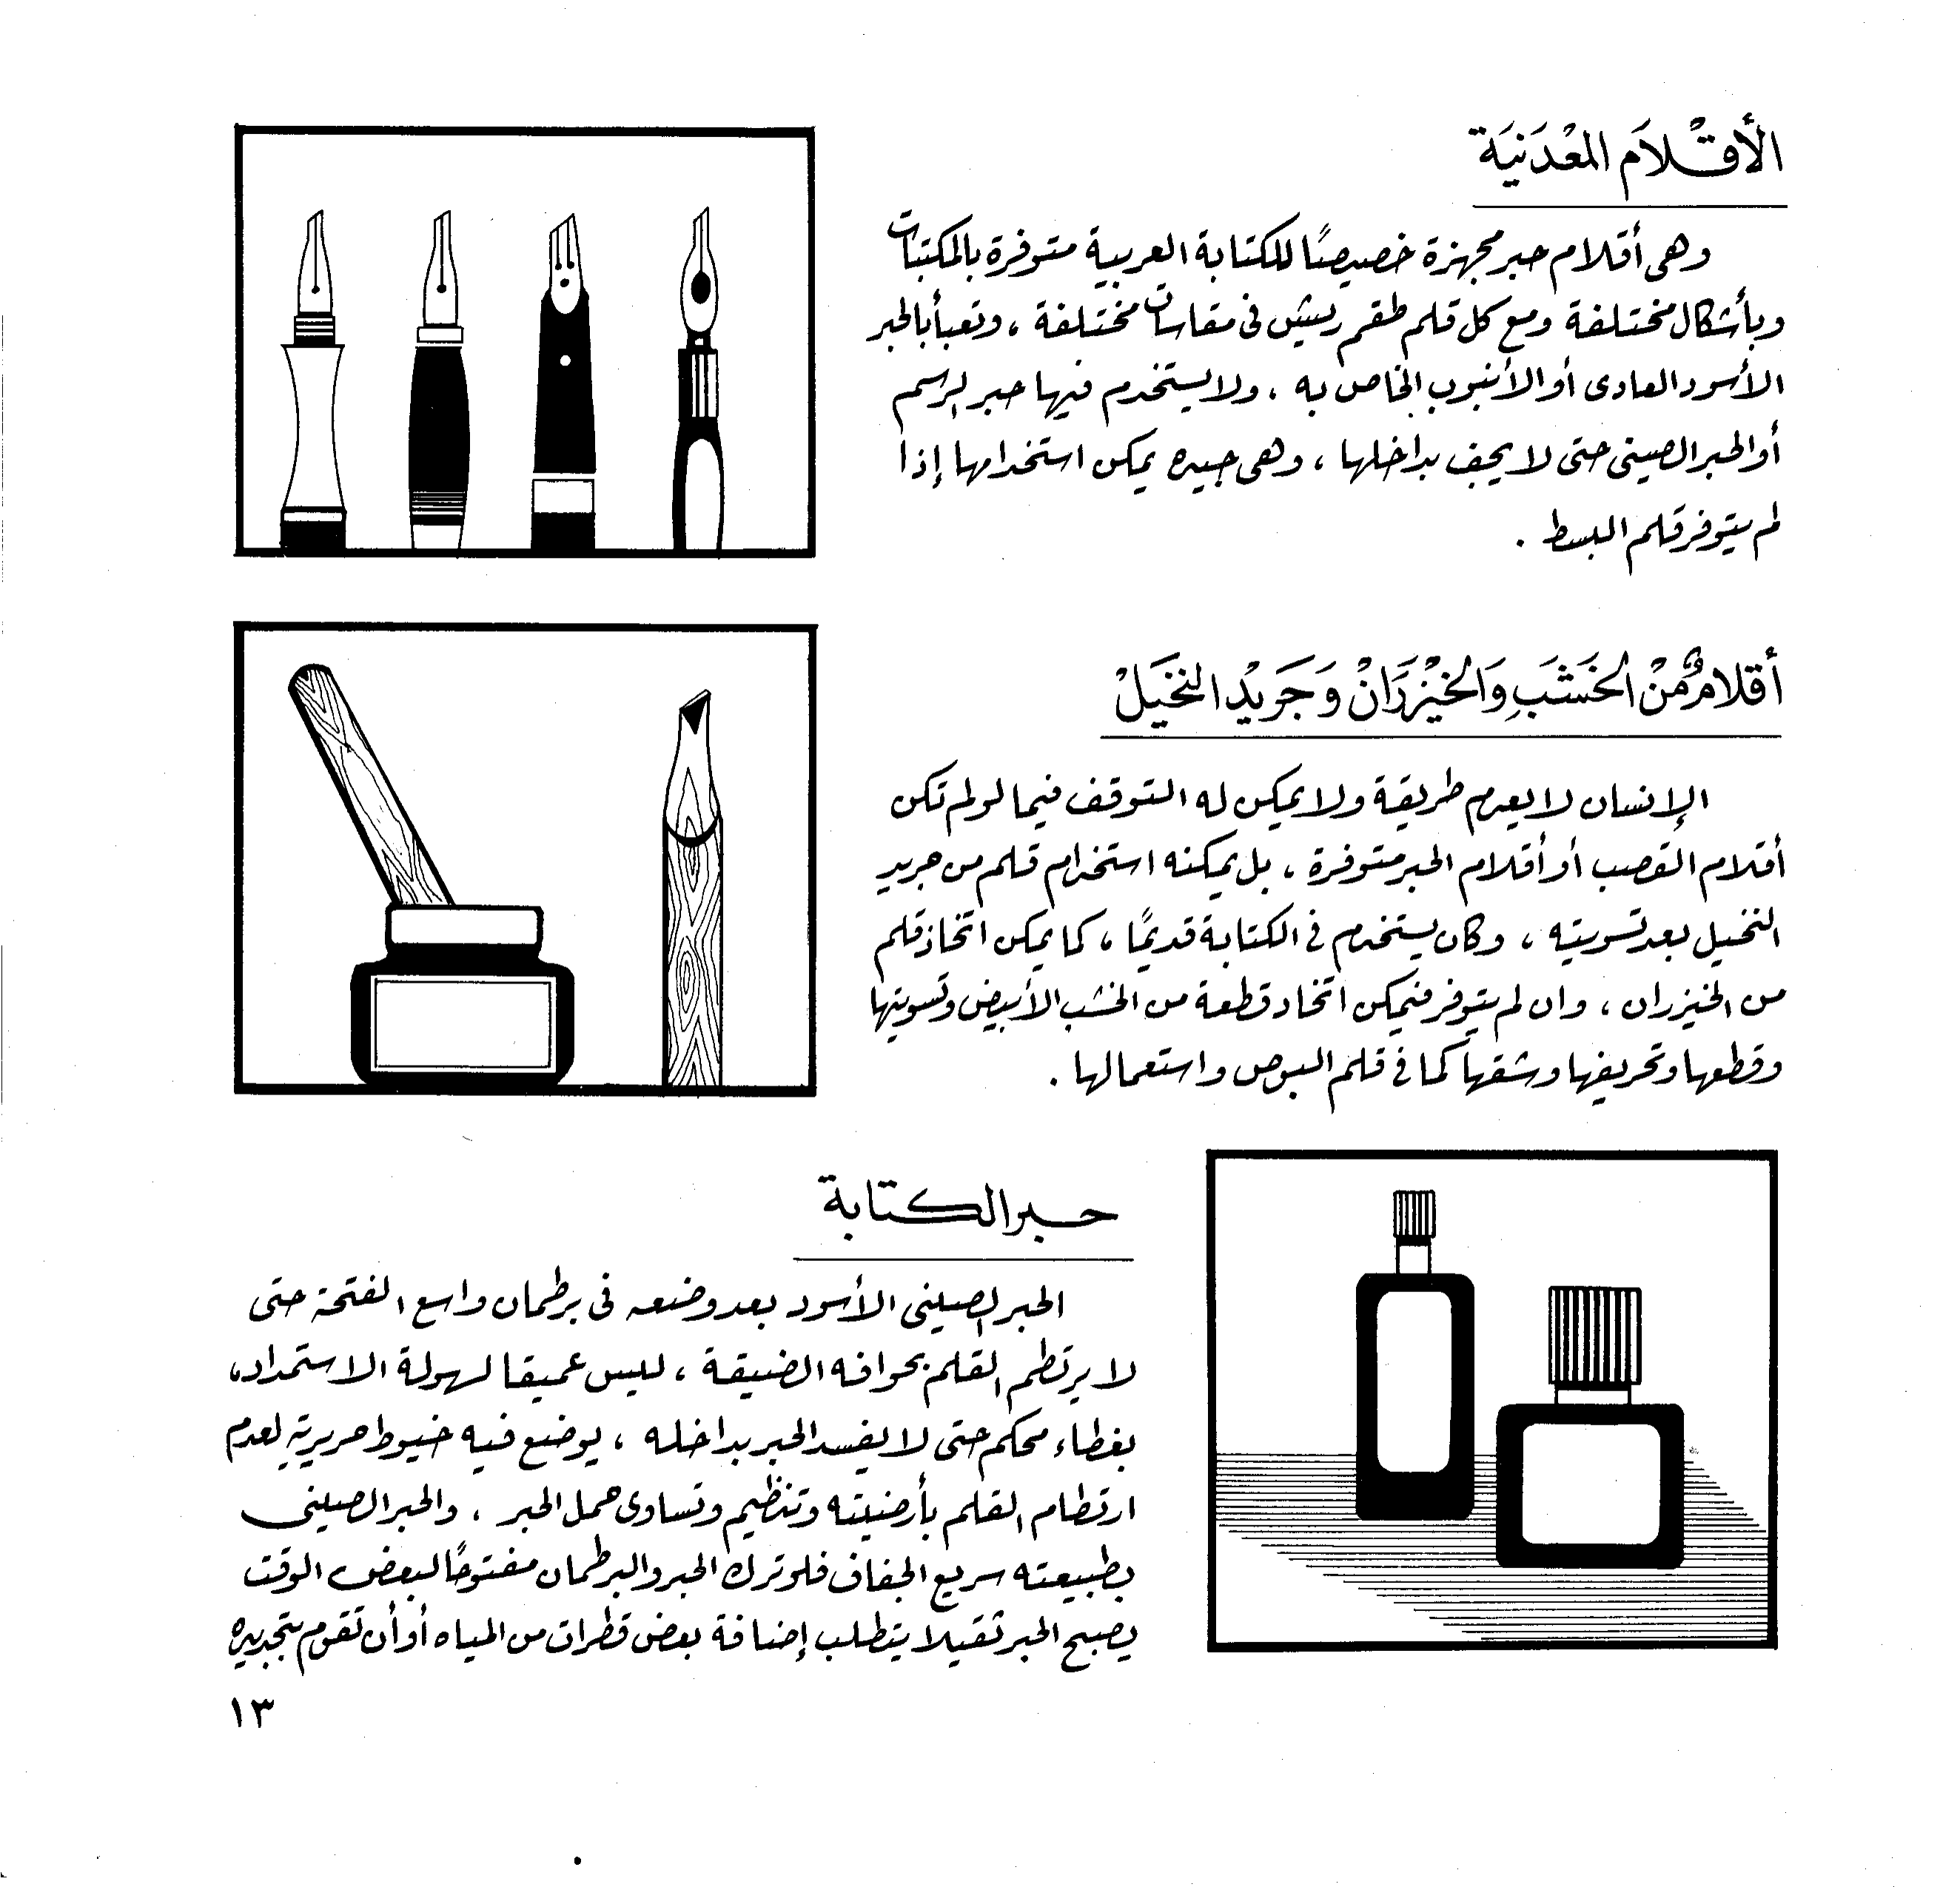 الأَقْلاَم المَعْدَنِيَة
وهى أقلام حبر مجهزة خصيصًا للكتابة العربية متوفرة بالمكتبات
وبأشكال مختلفة ومع كل قلم طقم ريش فى مقاسات مختلفة ، وتعبأ بالحبر
الأسود العادى أو الأنبوب الخاص به ، ولا يستخدم فيها حبر الرسم
أو الحبر الصينى حتى لا يجف بداخلها ، وهى جيده يمكن استخدامها إذا
لم يتوفر قلم البسط .
أقلامٌ مِنْ الخَشَبِ وَالخَيْزرَانْ وَجَرِيدْ النخَيلْ
الإنسان لا يعدم طريقة ولا يمكن له التوقف فيما لو لم تكن
أقلام القصب أو أقلام الحبر متوفرة ، بل يمكنه استخدام قلم من جريد
النخيل بعد تسويته ، وكان يستخدم فى الكتابة قديمًا ، كما يمكن اتخاذ قلم
من الخيزران ، وان لم يتوفر فيمكن اتخاد قطعة من الخشب الأبيض وتسويتها
وقطعها وتحريفها وشقها كما فى قلم البوص واستعمالها .
حبر الكتابة
الحبر الصينى الأسود بعد وضعه فى برطمان واسع الفتحة حتى
لا يرتطم القلم بحوافه الضيقة ، ليس عميقا لسهولة الاستمداد ،
بغطاء محكم حتى لا يفسد الحبر بداخله ، يوضع فيه خيوط حريرية لعدم
ارتطام القلم بأرضيته وتنظيم وتساوى حمل الحبر ، والحبر الصينى
بطبيعته سريع الجفاف فلو ترك الحبر والبرطمان مفتوحًا لبعض الوقت
يصبح الحبر ثقيلا يتطلب إضافة بعض قطرات من المياه أو أن تقوم بتجديده
١٣